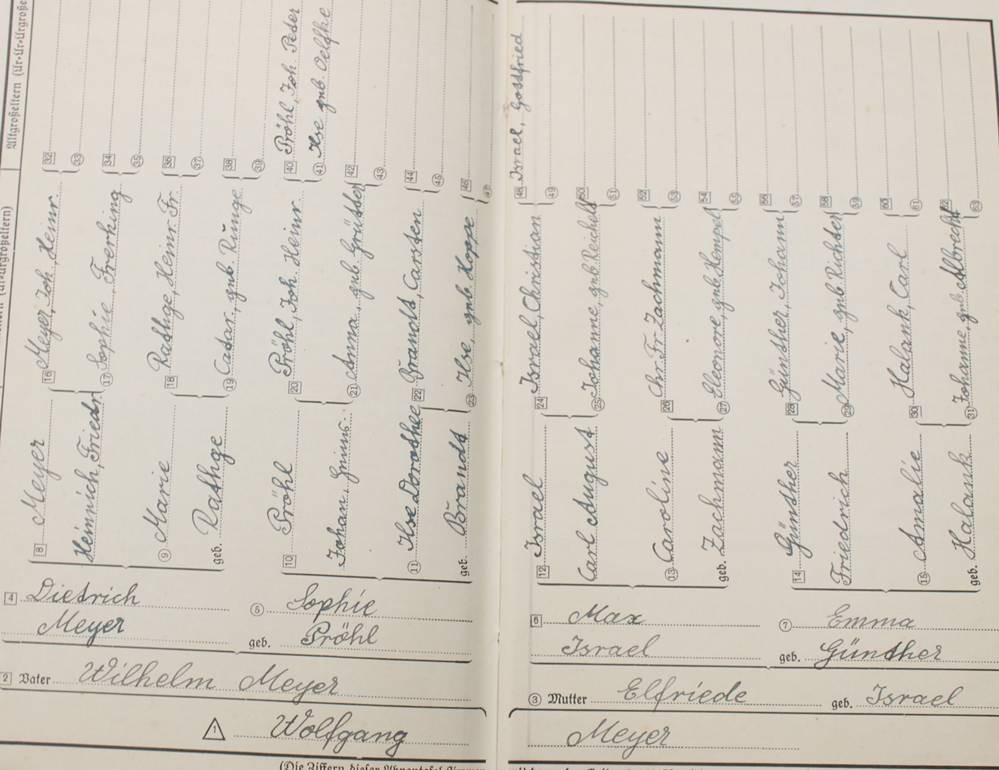 Altgroßeltern (Ur-Ur-Urgroße
32
33
34
35
36
37
38
39
40 Pröhl, Joh. Peter
41 Ilse geb. Oelfke
42
43
44
45
46
47
48 Israel, Gottfried
49
50
51
52
53
54
55
56
57
58
59
60
61
62
63
16 Meyer, Joh. Heinr.
17 Sophie Frerking
18 Rathge, Heinr. Fr.
19 Cathar., geb. Runge
20 Pröhl, Joh. Heinr.
21 Anna, geb. Grütter
22 Brandt, Carsten
23 Ilse, geb. Hoppe
24 Israel, Christian
25 Johanne, geb. Reichelt
26 Chr. Fr. Zachmann
27 Eleonore, geb. Hempel
28 Günther, Johann
29 Marie, geb. Richter
30 Halank, Carl
31 Johanne, geb. Albrecht
8 Meyer
Heinrich, Friedr.
9 Marie
geb. Rathge
10 Pröhl
Johann
11 Ilse Dorothee
geb. Brandt
12 Israel
Carl August
13 Caroline
geb. Zachmann
14 Günther
Friedrich
15 Amalie
geb. Halank
4 Dietrich
Meyer
5 Sophie
geb. Pröhl
6 Max
Israel
7 Emma
geb. Günther
2 Vater Wilhelm Meyer
3 Mutter Elfriede geb. Israel
1 Wolfgang
Meyer
(Die Ziffern dieser Ahnentafel